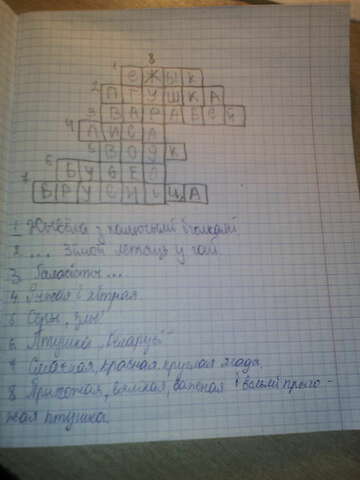 8
1 ЕЖЫК
2 ПТУШКА
3 ВАРАБЕЙ
4 ЛИСА
5 ВОЎК
6 БУСЕЛ
7
1 Жывёла з калючымі іголкамі
2 ... зімой у гай.
3 Галасісты ...
4 Рыжая і хітрая
5 Серы, злы
6 Птушка "Беларусі"
7 Смачная, красная, круглая ягада.
8 вялікая, важная і вельмі прыго-
жая птушка.